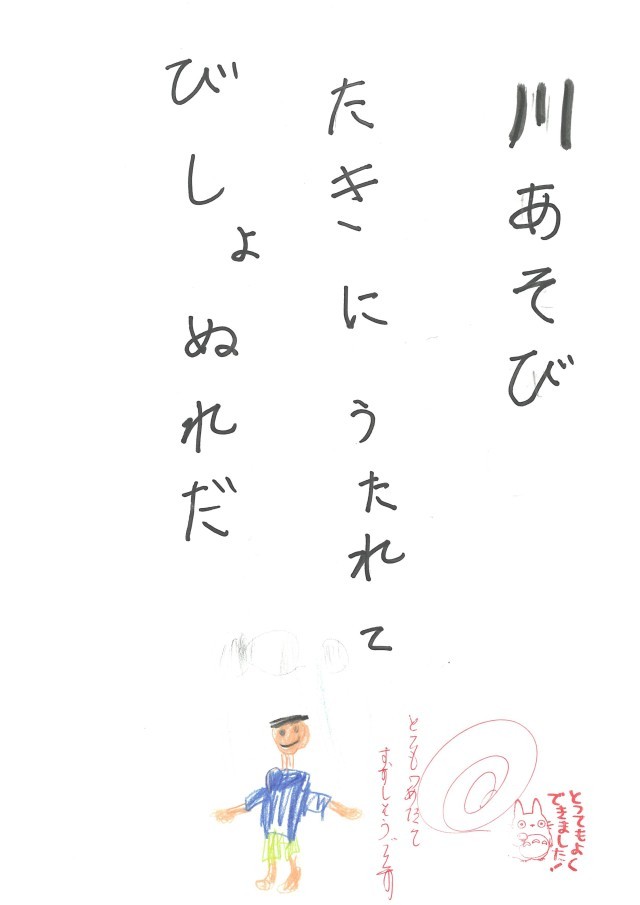 川あそび
たきにうたれて
びしょぬれだ
とてもつめたくて
すずしそうです
とってもよく
できました！